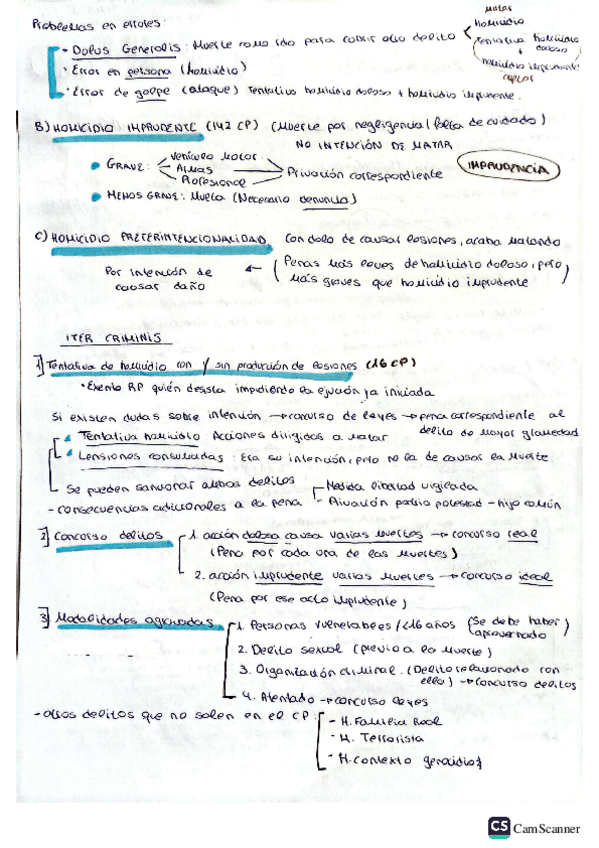 Problemas en errores:
Matar
homicidio
- Dolus Generalis: Muerte como ido para cubrir otro delito
Tentativa homicidio
+ doloso
homicidio imprudente
· Error en persona (homicidio)
· Error de golpe (ataque) Tentativa homicidio doloso + homicidio imprudente.
B) HOMICIDIO IMPRUDENTE (142 CP) (Muerte por negligencia/falta de cuidado)
NO INTENCIÓN DE MATAR
GRAVE: Vehículo Motor
Armas
Profesional
Privación correspondiente
IMPRUDENCIA
MENOS GRAVE: Multa (Necesario denuncia)
C) HOMICIDIO PRETERINTENCIONALIDAD Con dolo de causar lesiones, acaba matando
Por intención de causar daño ← (Penas más leves de homicidio doloso, pero
más graves que homicidio imprudente)
ITER CRIMINIS
1] Tentativa de homicidio con / sin producción de lesiones (16 CP)
· Exento RP quién desista impidiendo la ejución ya iniciada
Si existen dudas sobre intención → concurso de leyes → pena correspondiente al
delito de mayor gravedad
Tentativa homicidio Acciones dirigidas a matar
Lensiones consumadas: Era su intención, pero no la de causar la muerte
Se pueden sancionar ambos delitos
- consecuencias adicionales a la pena
- Medida libertad vigilada
- Privación patria potestad - hijo común
2] Concurso delitos
1. acción dolosa causa varias muertes → concurso real
(Pena por cada una de las muertes)
2. acción imprudente varias muertes → concurso ideal
(Pena por ese acto imprudente)
3] Modalidades agravadas
1. Personas vulnerables / <16 años (Se debe haber aprovechado)
2. Delito sexual (previo a la muerte)
3. Organización criminal. (Delito relacionado con
ella) → concurso delitos
4. Atentado → concurso leyes
- otros delitos que no salen en el CP:
- H. Familia Real
- H. Terrorista
- H. Contexto genocidio
CS CamScanner